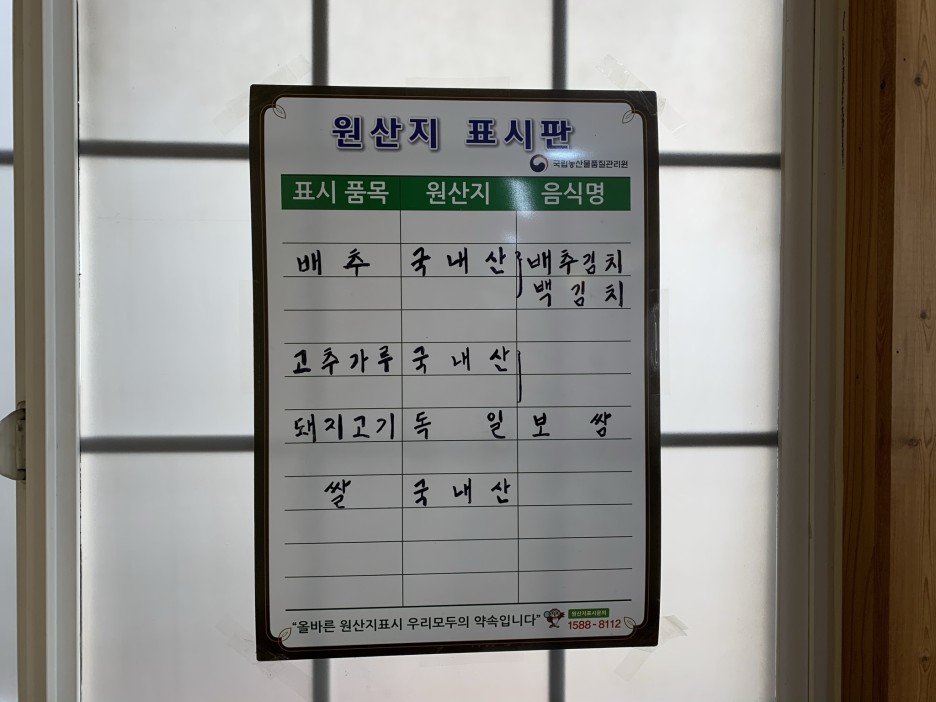 원산지 표시판
국립농산물품질관리원
표시 품목 원산지 음식명
배추 국내산 배추김치
백김치
고추가루 국내산
돼지고기 독일 보쌈
쌀 국내산
"올바른 원산지표시 우리모두의 약속입니다"
원산지표시문의
1588-8112